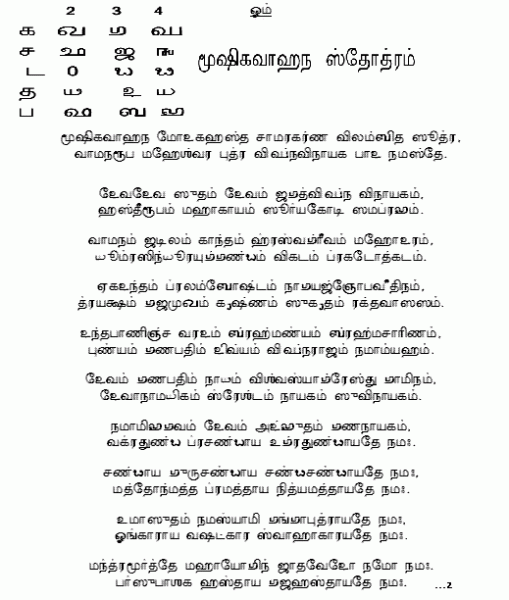 2 3 4
ஓம்
க 𑌖 𑌗 𑌘
ச 𑌛 ஜ 𑌝
ட 𑌠 𑌡 𑌢
த 𑌥 𑌦 𑌧
ப 𑌫 𑌬 𑌭
மூஷிகவாஹந ஸ்தோத்ரம்
மூஷிகவாஹந மோ𑌦கஹஸ்த சாமரகர்ண விலம்𑌬ித ஸூத்ர,
வாமநரூப மஹேஶ்வர புத்ர வி𑌘்நவிநாயக பா𑌦 நமஸ்தே.
𑌦ேவ𑌦ேவ ஸுதம் 𑌦ேவம் ஜ𑌗த்வி𑌘்ந விநாயகம்,
ஹஸ்தீரூபம் மஹாகாயம் ஸூர்யகோடி ஸமப்ர𑌭ம்.
வாமநம் ஜடிலம் காந்தம் ஹ்ரஸ்வ𑌗்ரீவம் மஹோ𑌦ரம்,
𑌧ூம்ரஸிந்𑌧ூரயு𑌗்𑌗ண்𑌡ம் விகடம் ப்ரகடோத்கடம்.
ஏக𑌦ந்தம் ப்ரலம்𑌬ோஷ்டம் நா𑌗யஜ்ஞோபவீதிநம்,
த்ரயக்ஷம் 𑌗ஜமு𑌖ம் க்ருஷ்ணம் ஸுக்ருதம் ரக்தவாஸஸம்.
𑌦ந்தபாணிஞ்ச வர𑌦ம் 𑌬்ரஹ்மண்யம் 𑌬்ரஹ்மசாரிணம்,
புண்யம் 𑌗ணபதிம் 𑌦ிவ்யம் வி𑌘்நராஜம் நமாம்யஹம்.
𑌦ேவம் 𑌗ணபதிம் நா𑌥ம் விஶ்வஸ்யா𑌗்ரேஸ்து 𑌗ாமிநம்,
𑌦ேவாநாம𑌧ிகம் ஶ்ரேஶ்டம் நாயகம் ஸுவிநாயகம்.
நமாமி𑌭வம் 𑌦ேவம் அ𑌦்𑌭ுதம் 𑌗ணநாயகம்,
வக்ரதுண்𑌡 ப்ரசண்𑌡ாய உ𑌗்ரதுண்𑌡ாயதே நமஃ.
சண்𑌡ாய 𑌗ுருசண்𑌡ாய சண்𑌡சண்𑌡ாயதே நமஃ,
மத்தோந்மத்த ப்ரமத்தாய நித்யமத்தாயதே நமஃ.
உமாஸுதம் நமஸ்யாமி 𑌗ங்𑌗ாபுத்ராயதே நமஃ,
ஓங்காராய வஷட்கார ஸ்வாஹாகாராயதே நமஃ.
மந்த்ரமூர்த்தே மஹாயோ𑌗ிந் ஜாதவே𑌦ோ நமோ நமஃ.
பரஶுபாஶக ஹஸ்தாய 𑌗ஜஹஸ்தாயதே நமஃ. ...2